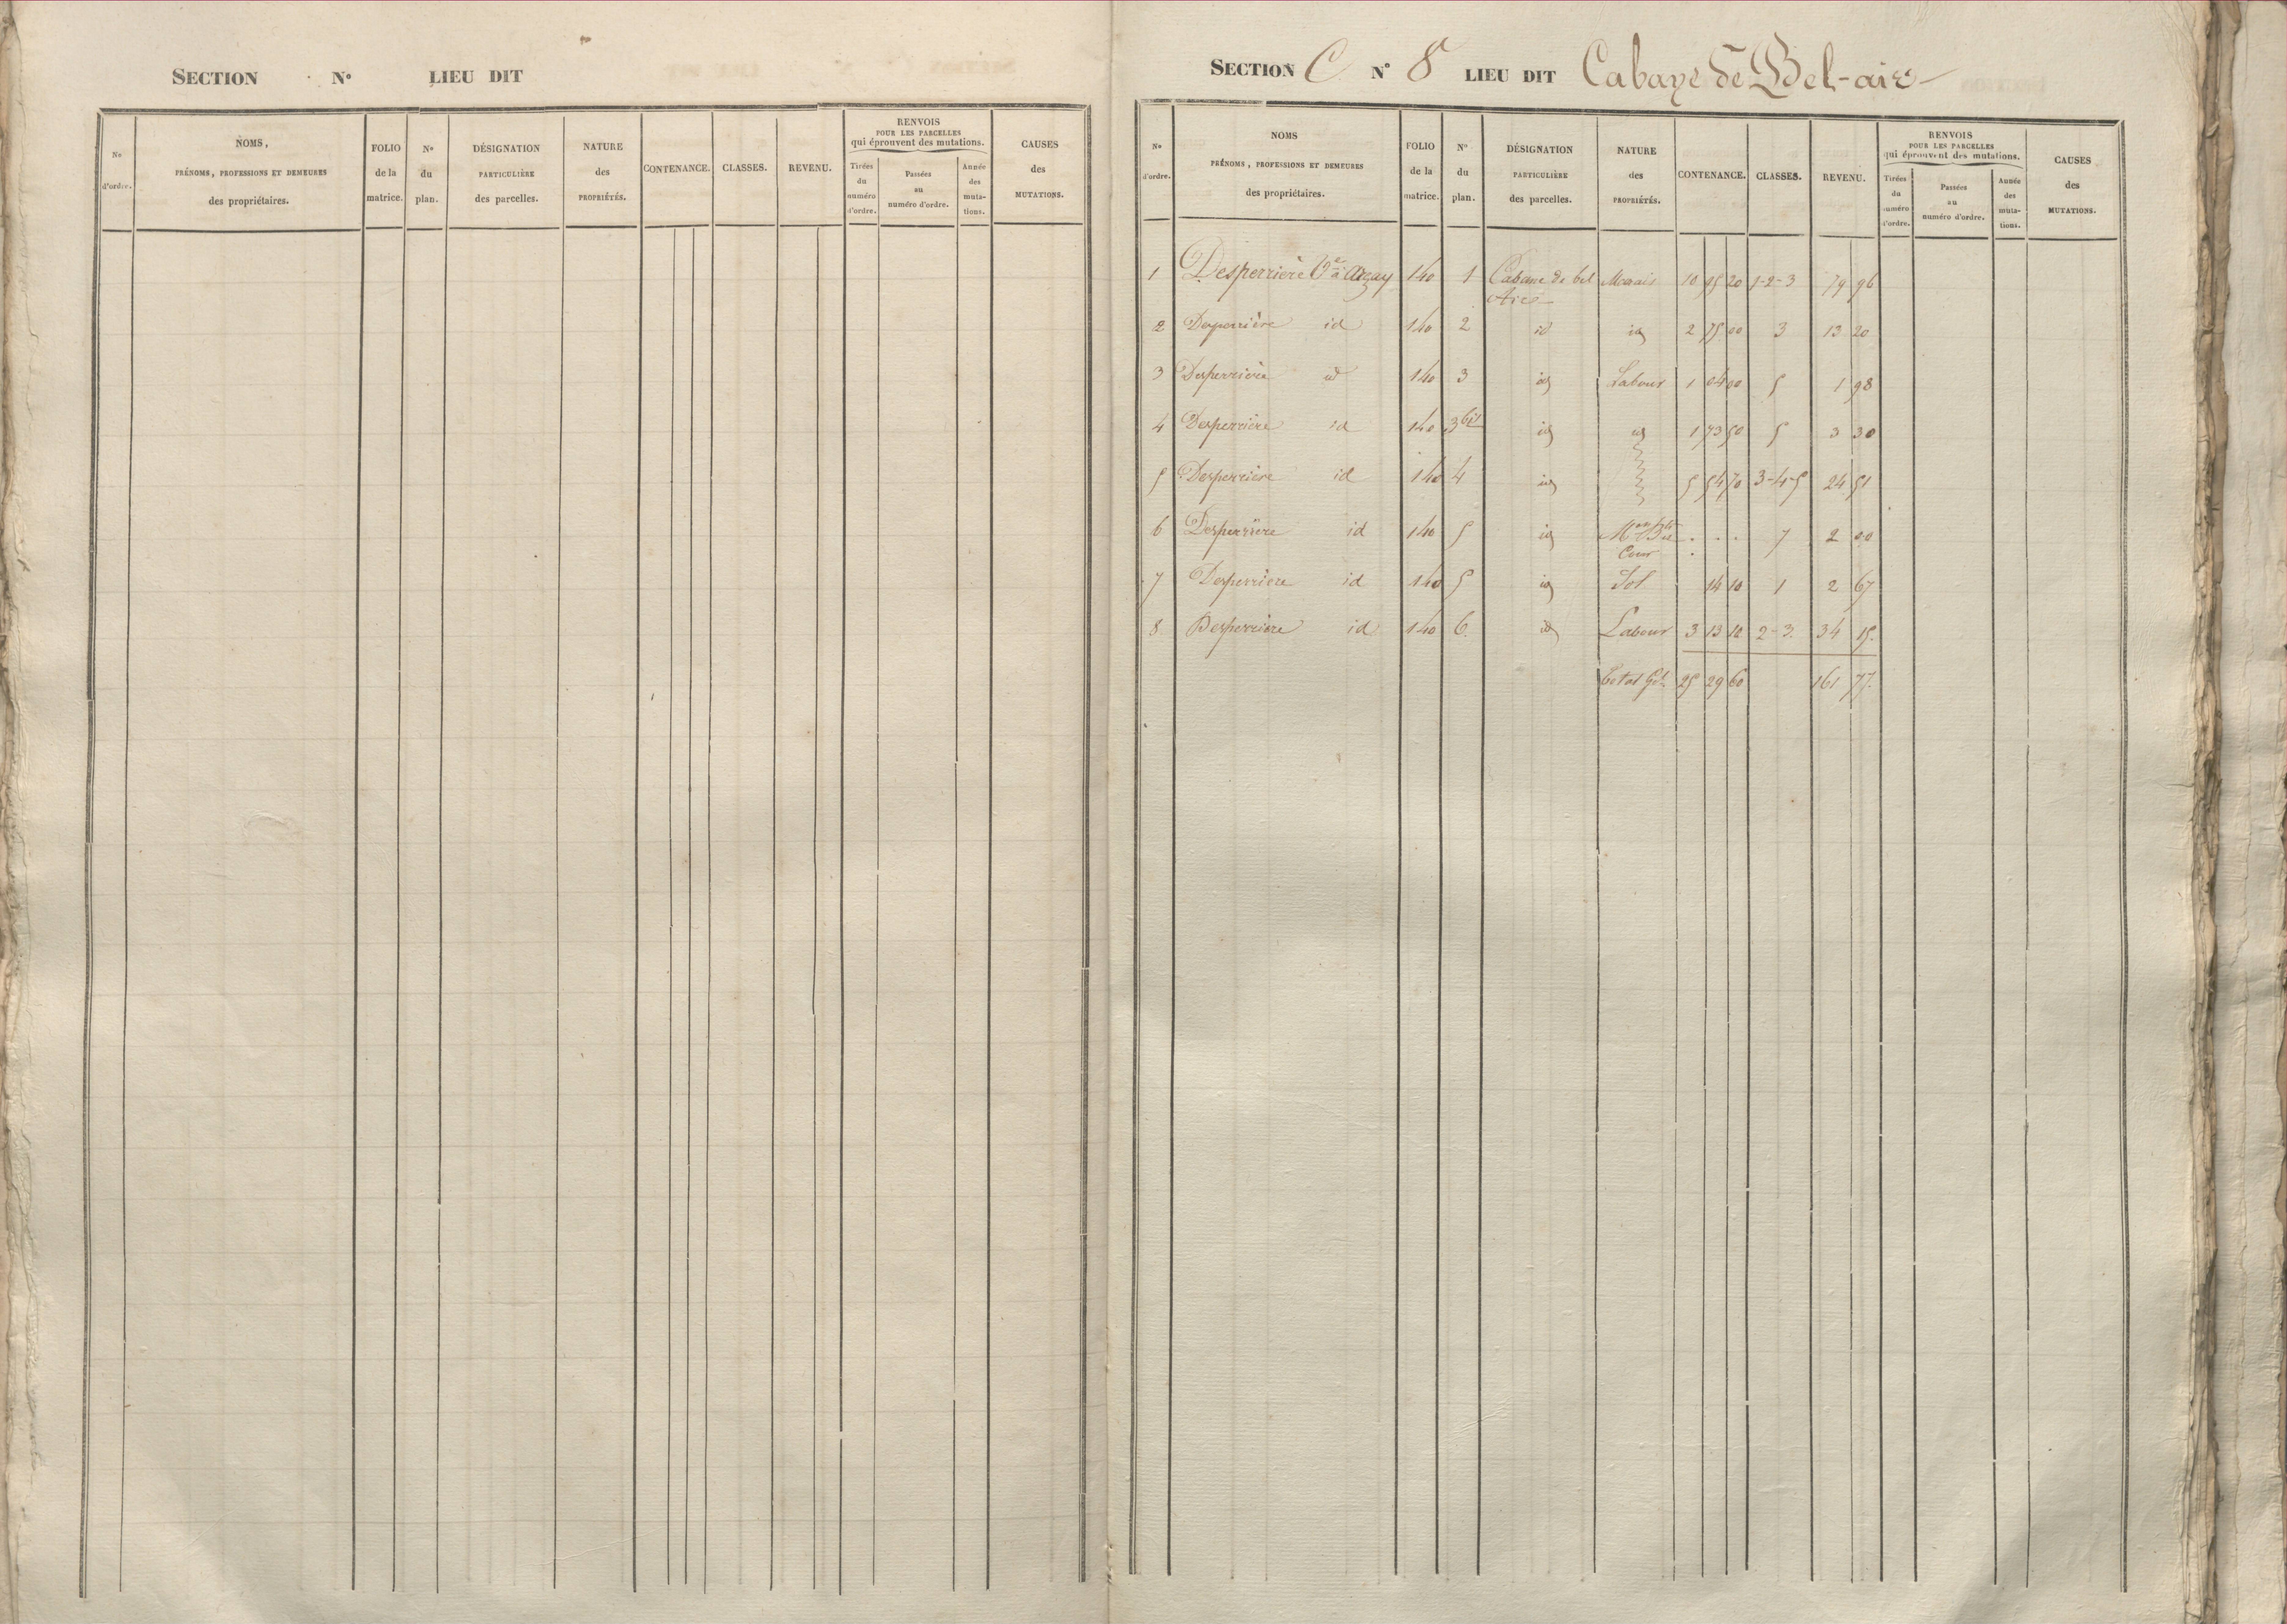 SECTION N° LIEU DIT
N° d'ordre.
NOMS, PRÉNOMS, PROFESSIONS ET DEMEURES des propriétaires.
FOLIO de la matrice.
N° du plan.
DÉSIGNATION PARTICULIÈRE des parcelles.
NATURE des PROPRIÉTÉS.
CONTENANCE.
CLASSES.
REVENU.
RENVOIS POUR LES PARCELLES qui éprouvent des mutations.
Tirées du numéro d'ordre.
Passées au numéro d'ordre.
Année des mutations.
CAUSES des MUTATIONS.
SECTION C N° 8 LIEU DIT Cabane de Bel-air
N° d'ordre.
NOMS PRÉNOMS, PROFESSIONS ET DEMEURES des propriétaires.
FOLIO de la matrice.
N° du plan.
DÉSIGNATION PARTICULIÈRE des parcelles.
NATURE des PROPRIÉTÉS.
CONTENANCE.
CLASSES.
REVENU.
RENVOIS POUR LES PARCELLES qui éprouvent des mutations.
Tirées du numéro d'ordre.
Passées au numéro d'ordre.
Année des mutations.
CAUSES des MUTATIONS.
1 Desperrière Ve à Azay 140 1 Cabane de bel Marais 10 95 20 1-2-3 79 96
Aire
2 Desperrière id 140 2 id id 2 75 00 3 13 20
3 Desperrière id 140 3 id Labour 1 04 00 5 1 98
4 Desperrière id 140 3bis id id 1 73 50 5 3 30
5 Desperrière id 140 4 id 5 54 70 3-4-5 24 51
6 Desperrière id 140 5 id Mon . . . 7 2 00
Cour
7 Desperrière id 140 5 id Sol 14 10 1 2 67
8 Desperrière id 140 6 id Labour 3 13 10 2-3. 34 15.
Total Gal 25 29 60 161 77.